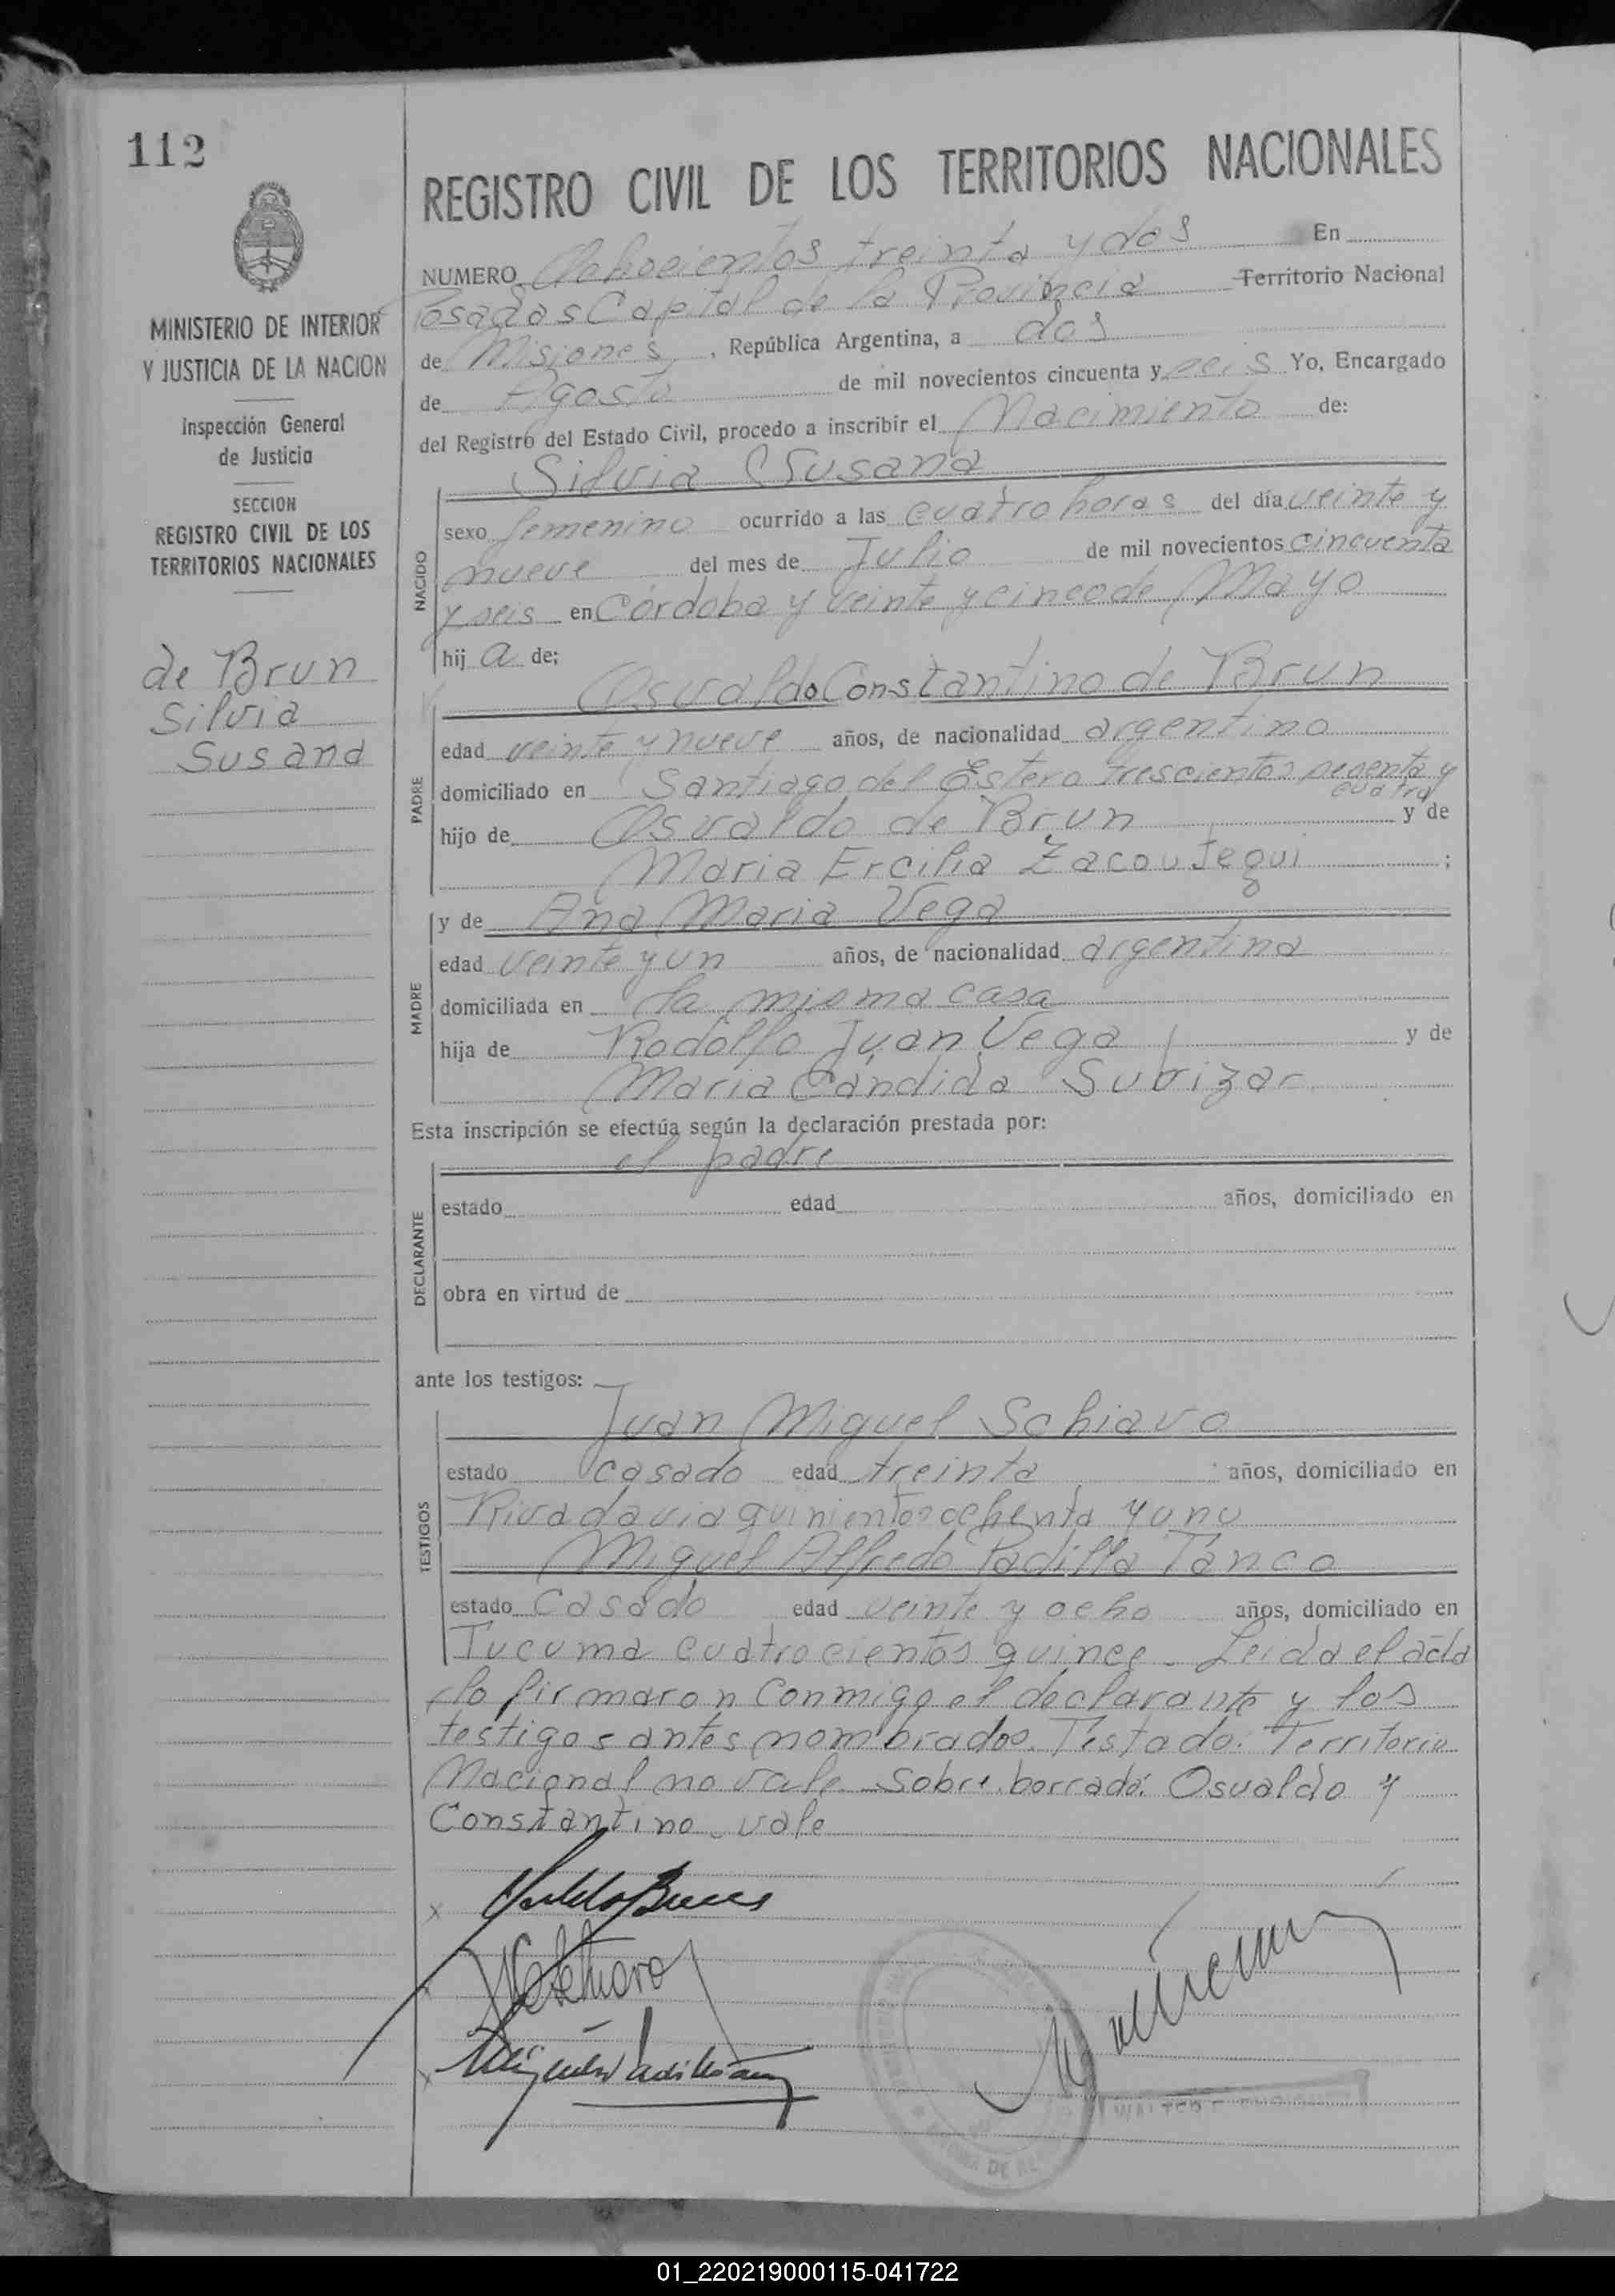 112
REGISTRO CIVIL DE LOS TERRITORIOS NACIONALES
MINISTERIO DE INTERIOR
Y JUSTICIA DE LA NACION
Inspección General
de Justicia
SECCION
REGISTRO CIVIL DE LOS
TERRITORIOS NACIONALES
de Brun
Silvia
Susana
NUMERO Ochocientos treinta y dos En
Posadas Capital de la Provincia Territorio Nacional
de Misiones, República Argentina, a dos
de Agosto de mil novecientos cincuenta y seis Yo, Encargado
del Registro del Estado Civil, procedo a inscribir el Nacimiento de:
Silvia Susana
NACIDO
sexo femenino ocurrido a las cuatro horas del día veinte y
nueve del mes de Julio de mil novecientos cincuenta
y seis en Córdoba y veinte y cinco de Mayo
hij a de:
Osvaldo Constantino de Brun
PADRE
edad veinte y nueve años, de nacionalidad argentino
domiciliado en Santiago del Estero trescientos sesenta y
cuatro
hijo de Osvaldo de Brun y de
Maria Ercilia Zacoutegui ;
y de Ana Maria Vega
MADRE
edad veinte y un años, de nacionalidad argentina
domiciliada en la misma casa
hija de Rodolfo Juan Vega y de
Maria Cándida Subizar
Esta inscripción se efectúa según la declaración prestada por:
el padre
DECLARANTE
estado edad años, domiciliado en
obra en virtud de
ante los testigos:
Juan Miguel Schiavo
TESTIGOS
estado casado edad treinta años, domiciliado en
Rivadavia quinientos ochenta y uno
Miguel Alfredo Padilla Tanco
estado casado edad veinte y ocho años, domiciliado en
Tucuma cuatrocientos quince. Leida el acta
lo firmaron conmigo el declarante y los
testigos antes nombrados. Testado: Territorio
Nacional no vale. Sobre borrado: Osvaldo y
Constantino. vale
01_220219000115-041722